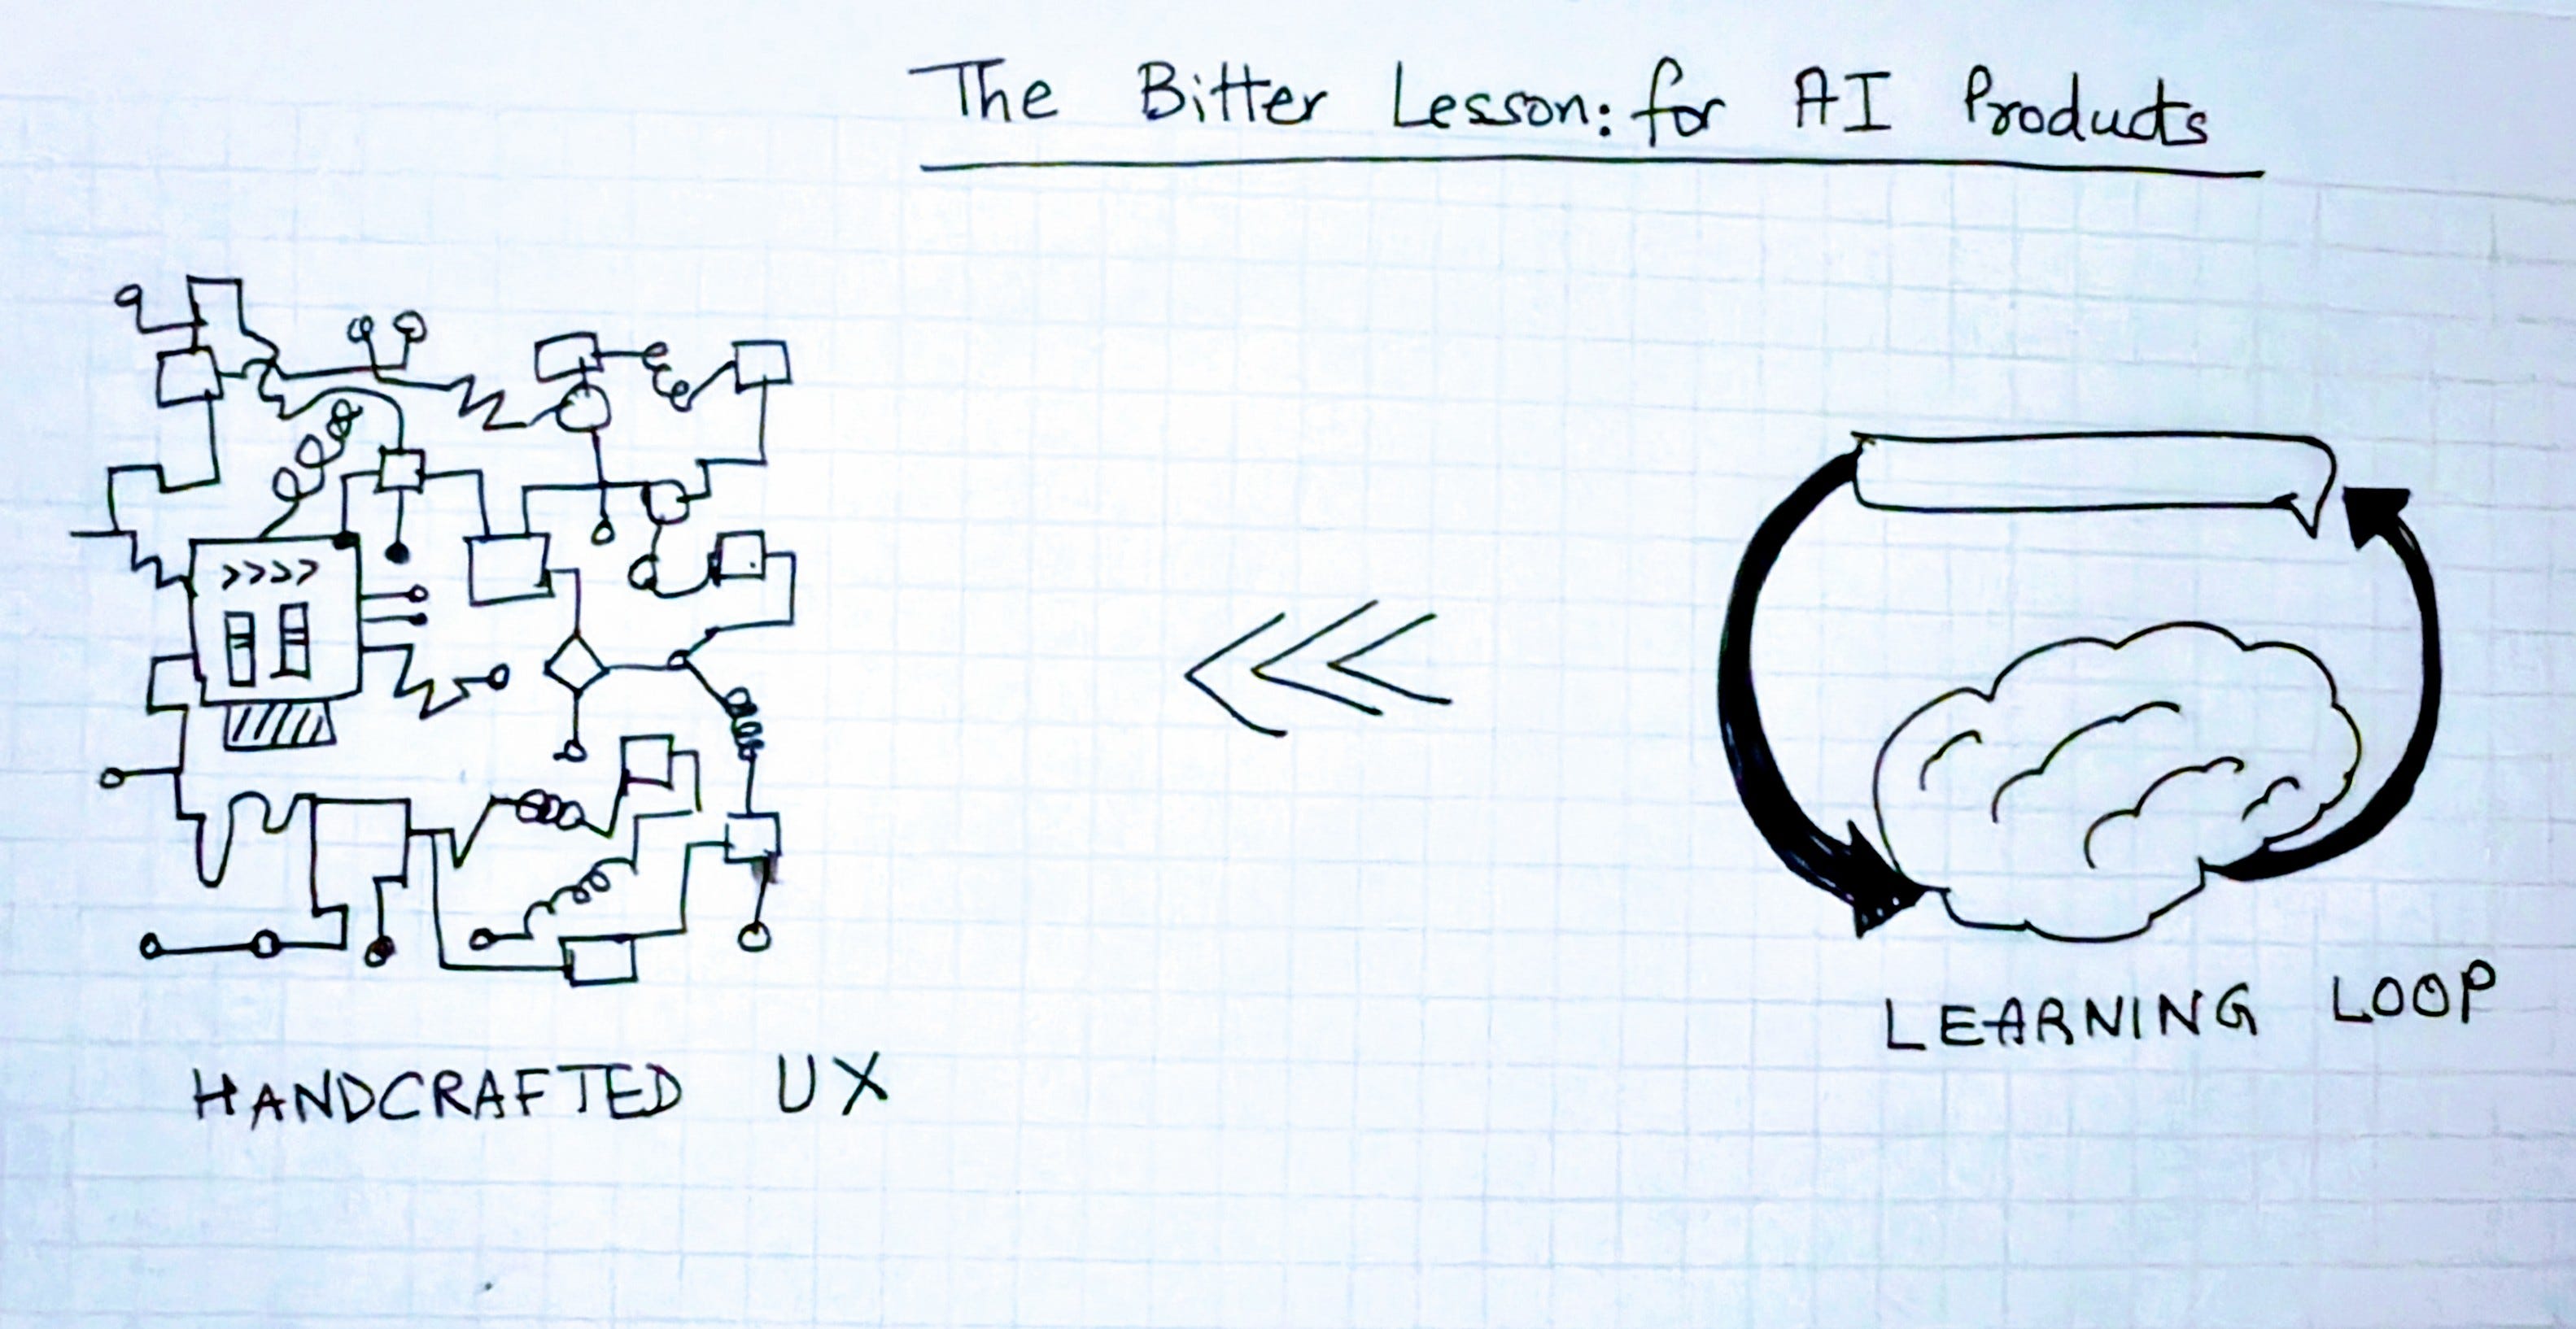 The Bitter Lesson: for AI Products
>>>>
<<<
HANDCRAFTED UX
LEARNING LOOP